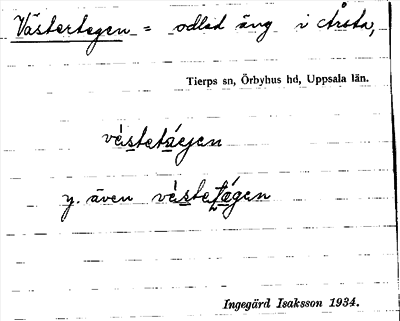 Västertegen = odlad äng i Årsta,
Tierps sn, Örbyhus hd, Uppsala län.
västetæejen
y. även västetægen
Ingegärd Isaksson 1934.